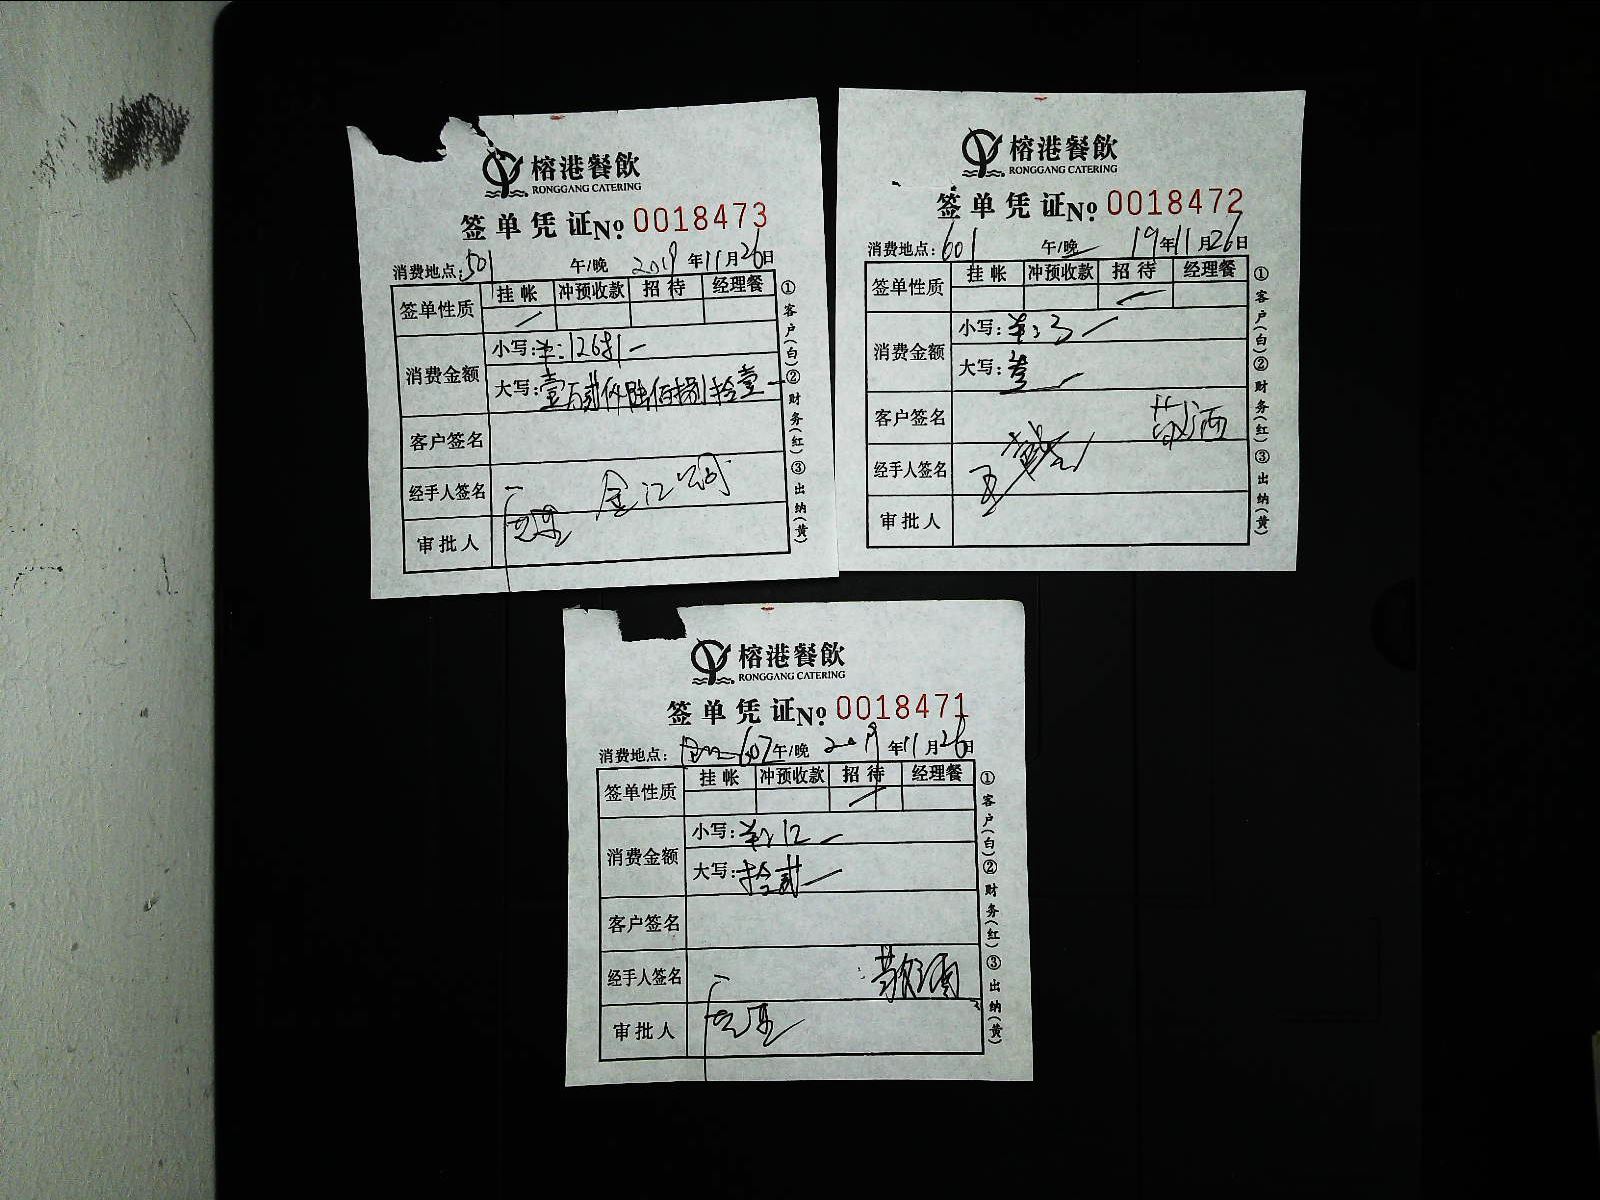 榕港餐飲
RONGGANG CATERING
签单凭证No. 0018473
消费地点: 501 午/晚 2019年11月26日
签单性质 挂帐 冲预收款 招待 经理餐
消费金额
小写: ¥:12681
大写: 壹万贰仟陆佰捌拾壹
客户签名
经手人签名
审批人
①客户(白)②财务(红)③出纳(黄)
榕港餐飲
RONGGANG CATERING
签单凭证No. 0018472
消费地点: 601 午/晚 19年11月26日
签单性质 挂帐 冲预收款 招待 经理餐
消费金额
小写: ¥:3
大写: 叁
客户签名
经手人签名
审批人
①客户(白)②财务(红)③出纳(黄)
榕港餐飲
RONGGANG CATERING
签单凭证No. 0018471
消费地点: 607 午/晚 2019年11月26日
签单性质 挂帐 冲预收款 招待 经理餐
消费金额
小写: ¥:12
大写: 拾贰
客户签名
经手人签名
审批人
①客户(白)②财务(红)③出纳(黄)